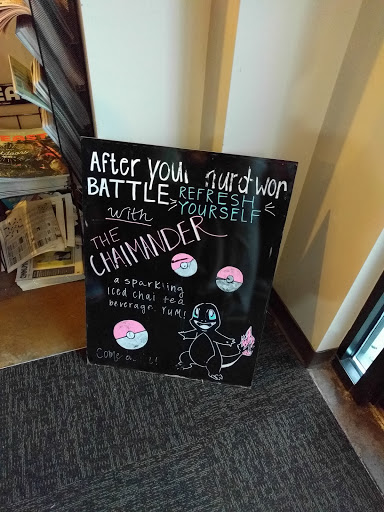 After your hard won
BATTLE REFRESH
YOURSELF
with
THE
CHAIMANDER
a sparkling
Iced chai tea
beverage. YUM!